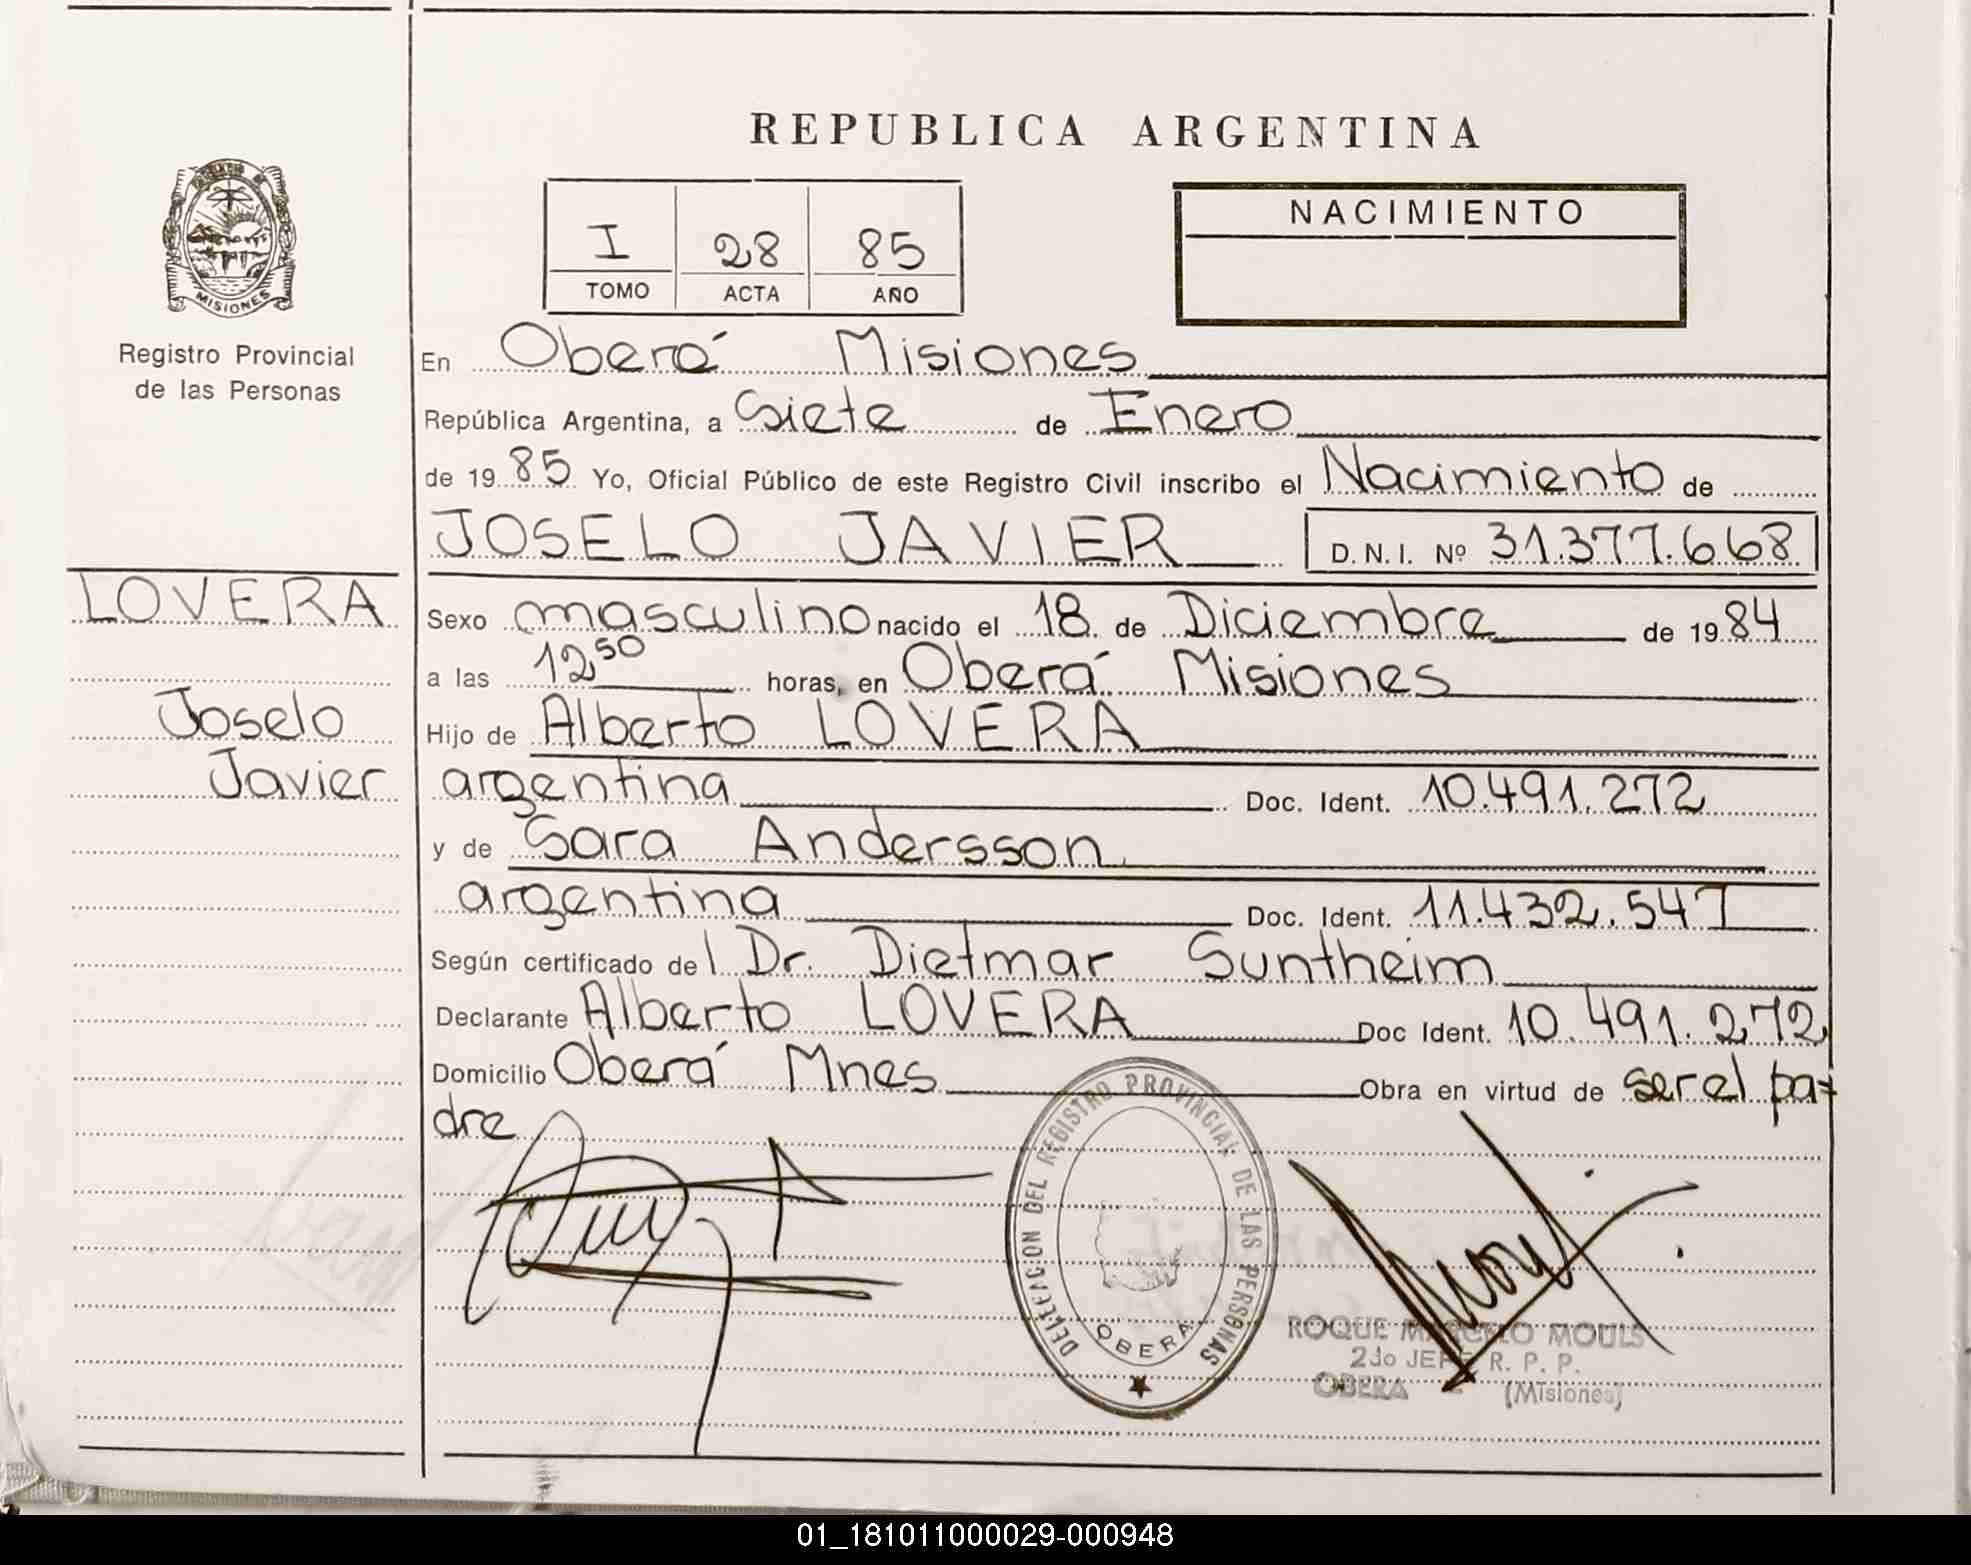 REPUBLICA ARGENTINA
MISIONES
Registro Provincial
de las Personas
I 28 85
TOMO ACTA AÑO
NACIMIENTO
En Oberá Misiones
República Argentina, a Siete de Enero
de 1985 Yo, Oficial Público de este Registro Civil inscribo el Nacimiento de
JOSELO JAVIER D. N. I. Nº 31.377.668
LOVERA
Joselo
Javier
Sexo masculino nacido el 18 de Diciembre de 1984
a las 12 50 horas, en Oberá Misiones
Hijo de Alberto LOVERA
argentina Doc. Ident. 10.491.272
y de Sara Andersson
argentina Doc. Ident. 11.432.547
Según certificado del Dr. Dietmar Suntheim
Declarante Alberto LOVERA Doc Ident. 10.491.272
Domicilio Oberá Mnes Obra en virtud de ser el pa=
dre
DELEGACION DEL REGISTRO PROVINCIAL DE LAS PERSONAS
OBERA
ROQUE MARCELO MOULS
2do JEFE R. P. P.
OBERA (Misiones)
01_181011000029-000948